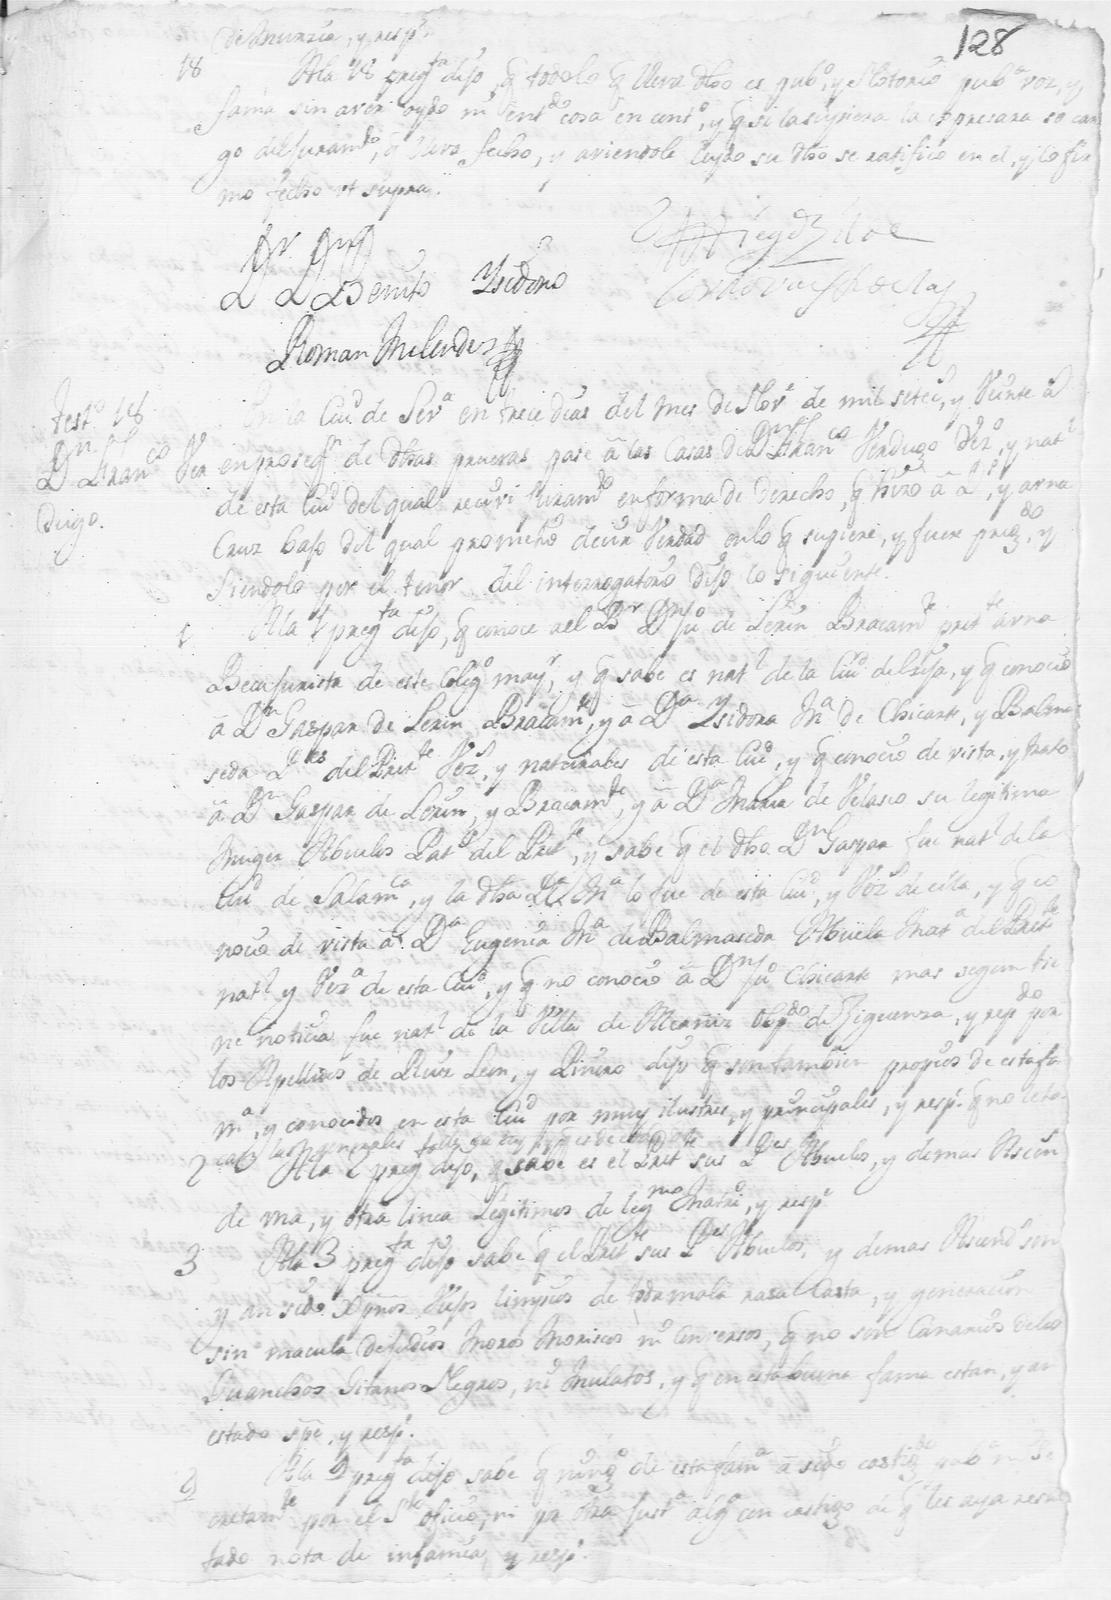 128
de Murzia, y resp.
18 A la 18 preg.ta dijo, q todo lo q lleva dho es pub.o, y Notorio pub.a voz, y
fama sin aver oydo ni ent.do cosa en cont.o, y q si la supiera la expresara so car
go del juram.to, q lleva fecho, y aviendole leydo su dho se ratifico en el, y lo fir
mo fecho ut supra.
D.r D.n Benito Ysidoro
Roman Melendes
Test.o 18
D.n Fran.co Ver
dugo.
En la Ciu.d de Sev.a en trece dias del mes de Nov.e de mil setec.s y Veinte a
en proseg.n de dhas pruevas pase a las Casas de D.n Fran.co Verdugo Vez.o, y nat.l
de esta Ciu.d del qual recivi juram.to en forma de derecho, q hizo a D.s, y a una
Cruz bajo del qual prometio decir Verdad en lo q supiere, y fuere preg.do, y
siendolo por el tenor del interrogatorio dijo lo siguiente.
1 A la 1 preg.ta dijo, q conoce a el B.r D.n Ju.o de Lerin Bracam.te pret.te a una
Beca Jurista de este Coleg.o may.r, y q sabe es nat.l de la Ciu.d de, y q conocio
a D.n Gaspar de Lerin Bracam.te, y a D.a Ysidora M.a de Chicarte, y Balma
seda P.res del Pret.te Vez.s, y naturales de esta Ciu.d, y q conocio de vista, y trato
a D.n Gaspar de Lerin, y Bracam.te, y a D.a Maria de Velasco su legitima
muger Abuelos Pat.s del Pret.te, y sabe q el dho D.n Gaspar fue nat.l de la
Ciu.d de Salam.ca, y la dha D.a M.a lo fue de esta Ciu.d, y Vez.s de ella, y q co
nocio de vista a D.a Eugenia M.a de Balmaseda Abuela Mat.a del Pret.te
nat.l y Vez.a de esta Ciu.d, y q no conocio a D.n Ju.o Chicarte mas segun tie
ne noticia fue nat.l de la Villa de Obp.do de Ziguenza, y resp.do por
los Apellidos de y dijo q son tambien propios de esta fa
m.a, y conocidos en esta Ciu.d por muy ilustres, y principales, y resp. q no le to
can las generales
2 A la 2 preg.ta dijo, q sabe es el Pret.te sus P.res Abuelos, y demas Ascen
de una, y otra linea Legitimos de leg.mo Matri.o, y resp.e
3 A la 3 preg.ta dijo sabe q el Pret.te sus P.res Abuelos, y demas Ascend.s son
y an sido Xpnos Viejos limpios de toda mala rasa Casta, y generacion
sin macula de Judios Moros Moriscos ni Conversos, q no son Canarios de los
Guanchos Gitanos Negros, ni Mulatos, y q en esta buena fama estan, y an
estado spe, y resp.
A la preg.ta dijo sabe q ning.o de esta fam.a a sido castig.do pub.o ni Se
cretam.te por el S.to oficio, ni por otra Just.a alg.a con castigo de q les aya resul
tado nota de infamia, y resp.